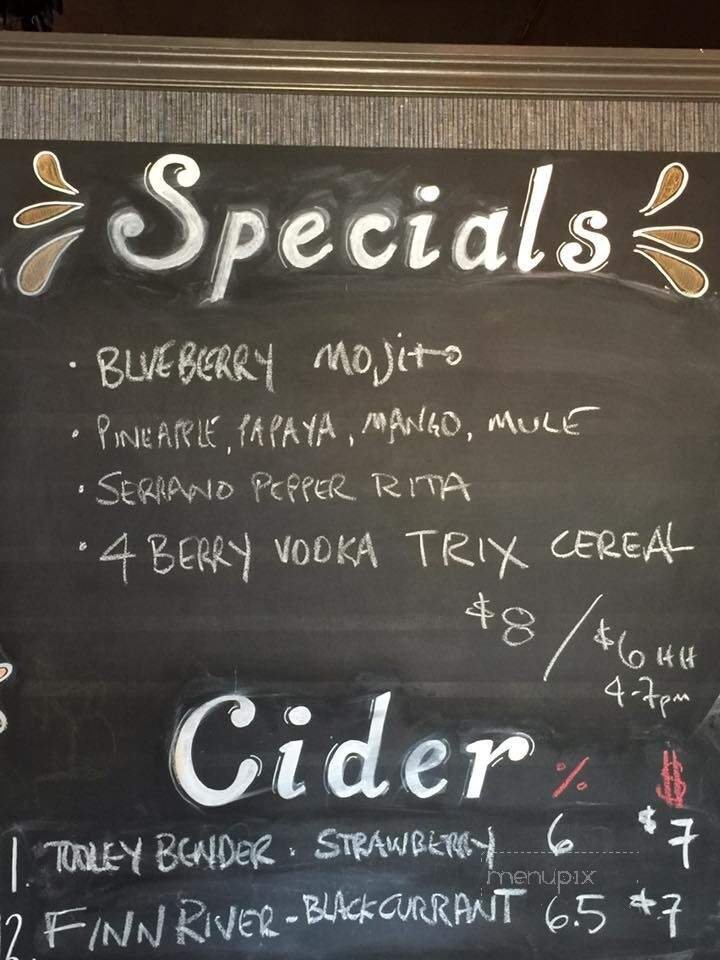 Specials
· BLUEBERRY MOJITO
· PINEAPPLE, PAPAYA, MANGO, MULE
· SERRANO PEPPER RITA
· 4 BERRY VODKA TRIX CEREAL
$8 / $6 HH
4-7pm
Cider % $
1. BENDER. STRAWBERRY 6 $7
menupix
2. FINN RIVER - BLACKCURRANT 6.5 $7